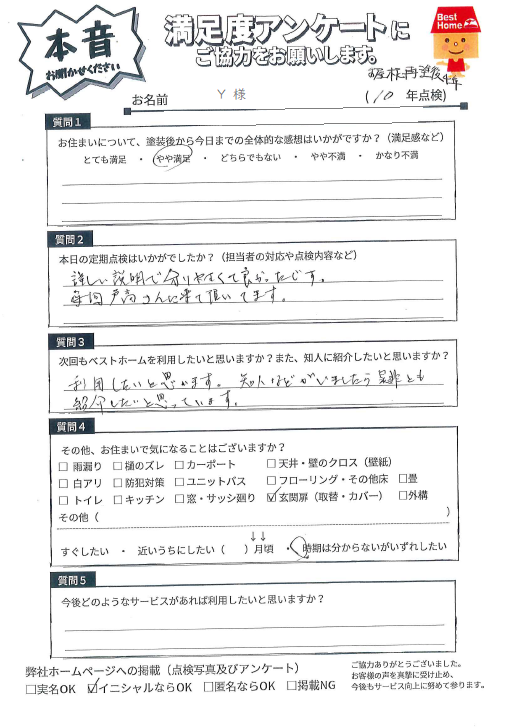 本音
お聞かせください
満足度アンケートに
ご協力をお願いします。
Best
Home
屋根再塗装後4年
お名前 Y 様 (10 年点検)
質問1
お住まいについて、塗装後から今日までの全体的な感想はいかがですか?(満足感など)
とても満足 ・ やや満足 ・ どちらでもない ・ やや不満 ・ かなり不満
質問2
本日の定期点検はいかがでしたか?(担当者の対応や点検内容など)
詳しい説明で分りやすくて良かったです。
毎回戸高さんに来て頂いてます。
質問3
次回もベストホームを利用したいと思いますか?また、知人に紹介したいと思いますか?
利用したいと思います。知人などがいましたら是非とも
紹介したいと思っています。
質問4
その他、お住まいで気になることはございますか?
□ 雨漏り □ 樋のズレ □ カーポート □ 天井・壁のクロス(壁紙)
□ 白アリ □ 防犯対策 □ ユニットバス □ フローリング・その他床 □畳
□ トイレ □ キッチン □ 窓・サッシ廻り ☑ 玄関扉(取替・カバー) □外構
その他( )
↓↓
すぐしたい ・ 近いうちにしたい( )月頃 ・ 時期は分からないがいずれしたい
質問5
今後どのようなサービスがあれば利用したいと思いますか?
弊社ホームページへの掲載(点検写真及びアンケート)
□実名OK ☑イニシャルならOK □匿名ならOK □掲載NG
ご協力ありがとうございました。
お客様の声を真摯に受け止め、
今後もサービス向上に努めて参ります。